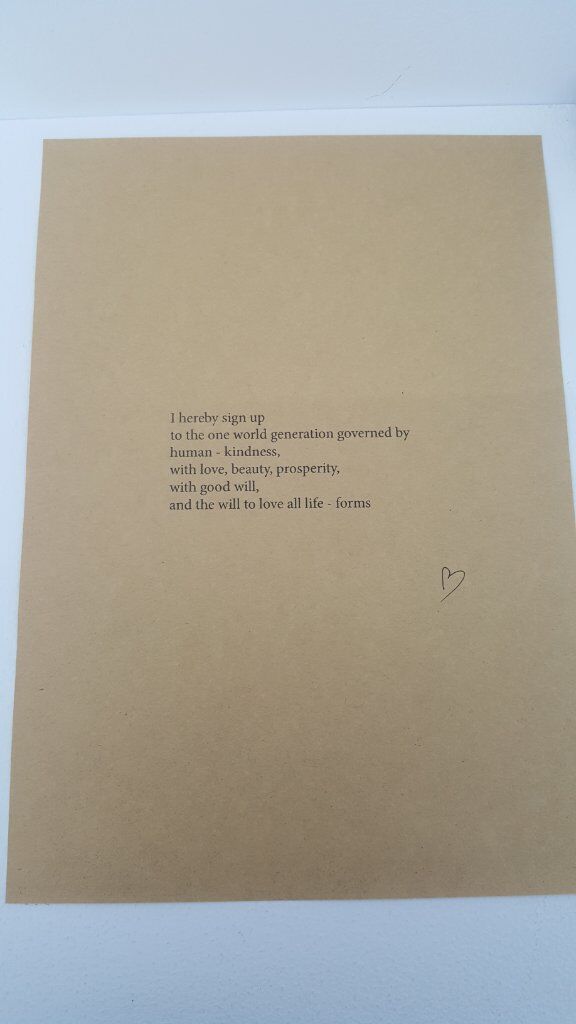 I hereby sign up
to the one world generation governed by
human - kindness,
with love, beauty, prosperity,
with good will,
and the will to love all life - forms